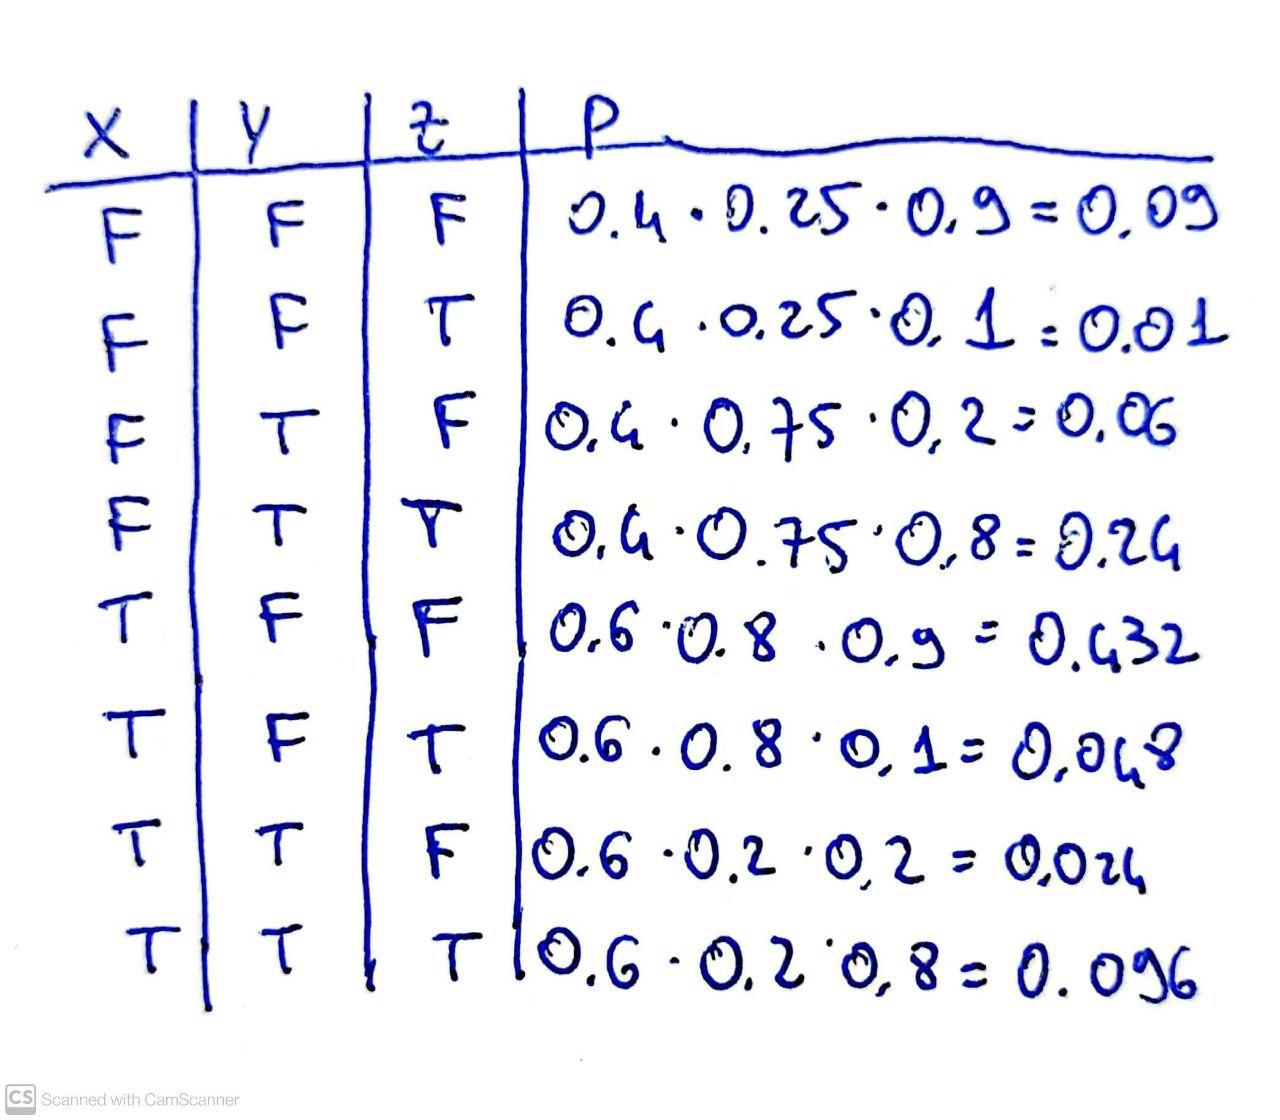 X Y Z P
F F F 0.4 · 0.25 · 0,9 = 0,09
F F T 0.4 · 0.25 · 0,1 = 0.01
F T F 0,4 · 0,75 · 0,2 = 0,06
F T T 0,4 · 0.75 · 0,8 = 0.24
T F F 0,6 · 0.8 · 0,9 = 0.432
T F T 0.6 · 0.8 · 0,1 = 0,048
T T F 0.6 · 0.2 · 0,2 = 0,024
T T T 0.6 · 0.2 · 0,8 = 0.096
CS Scanned with CamScanner